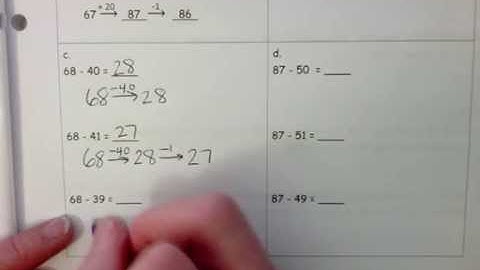 67 +20→ 87 -1→ 86
c.
68 - 40 = 28
68 -40→ 28
68 - 41 = 27
68 -40→ 28 -1→ 27
68 - 39 = ____
d.
87 - 50 = ____
87 - 51 = ____
87 - 49 = ____